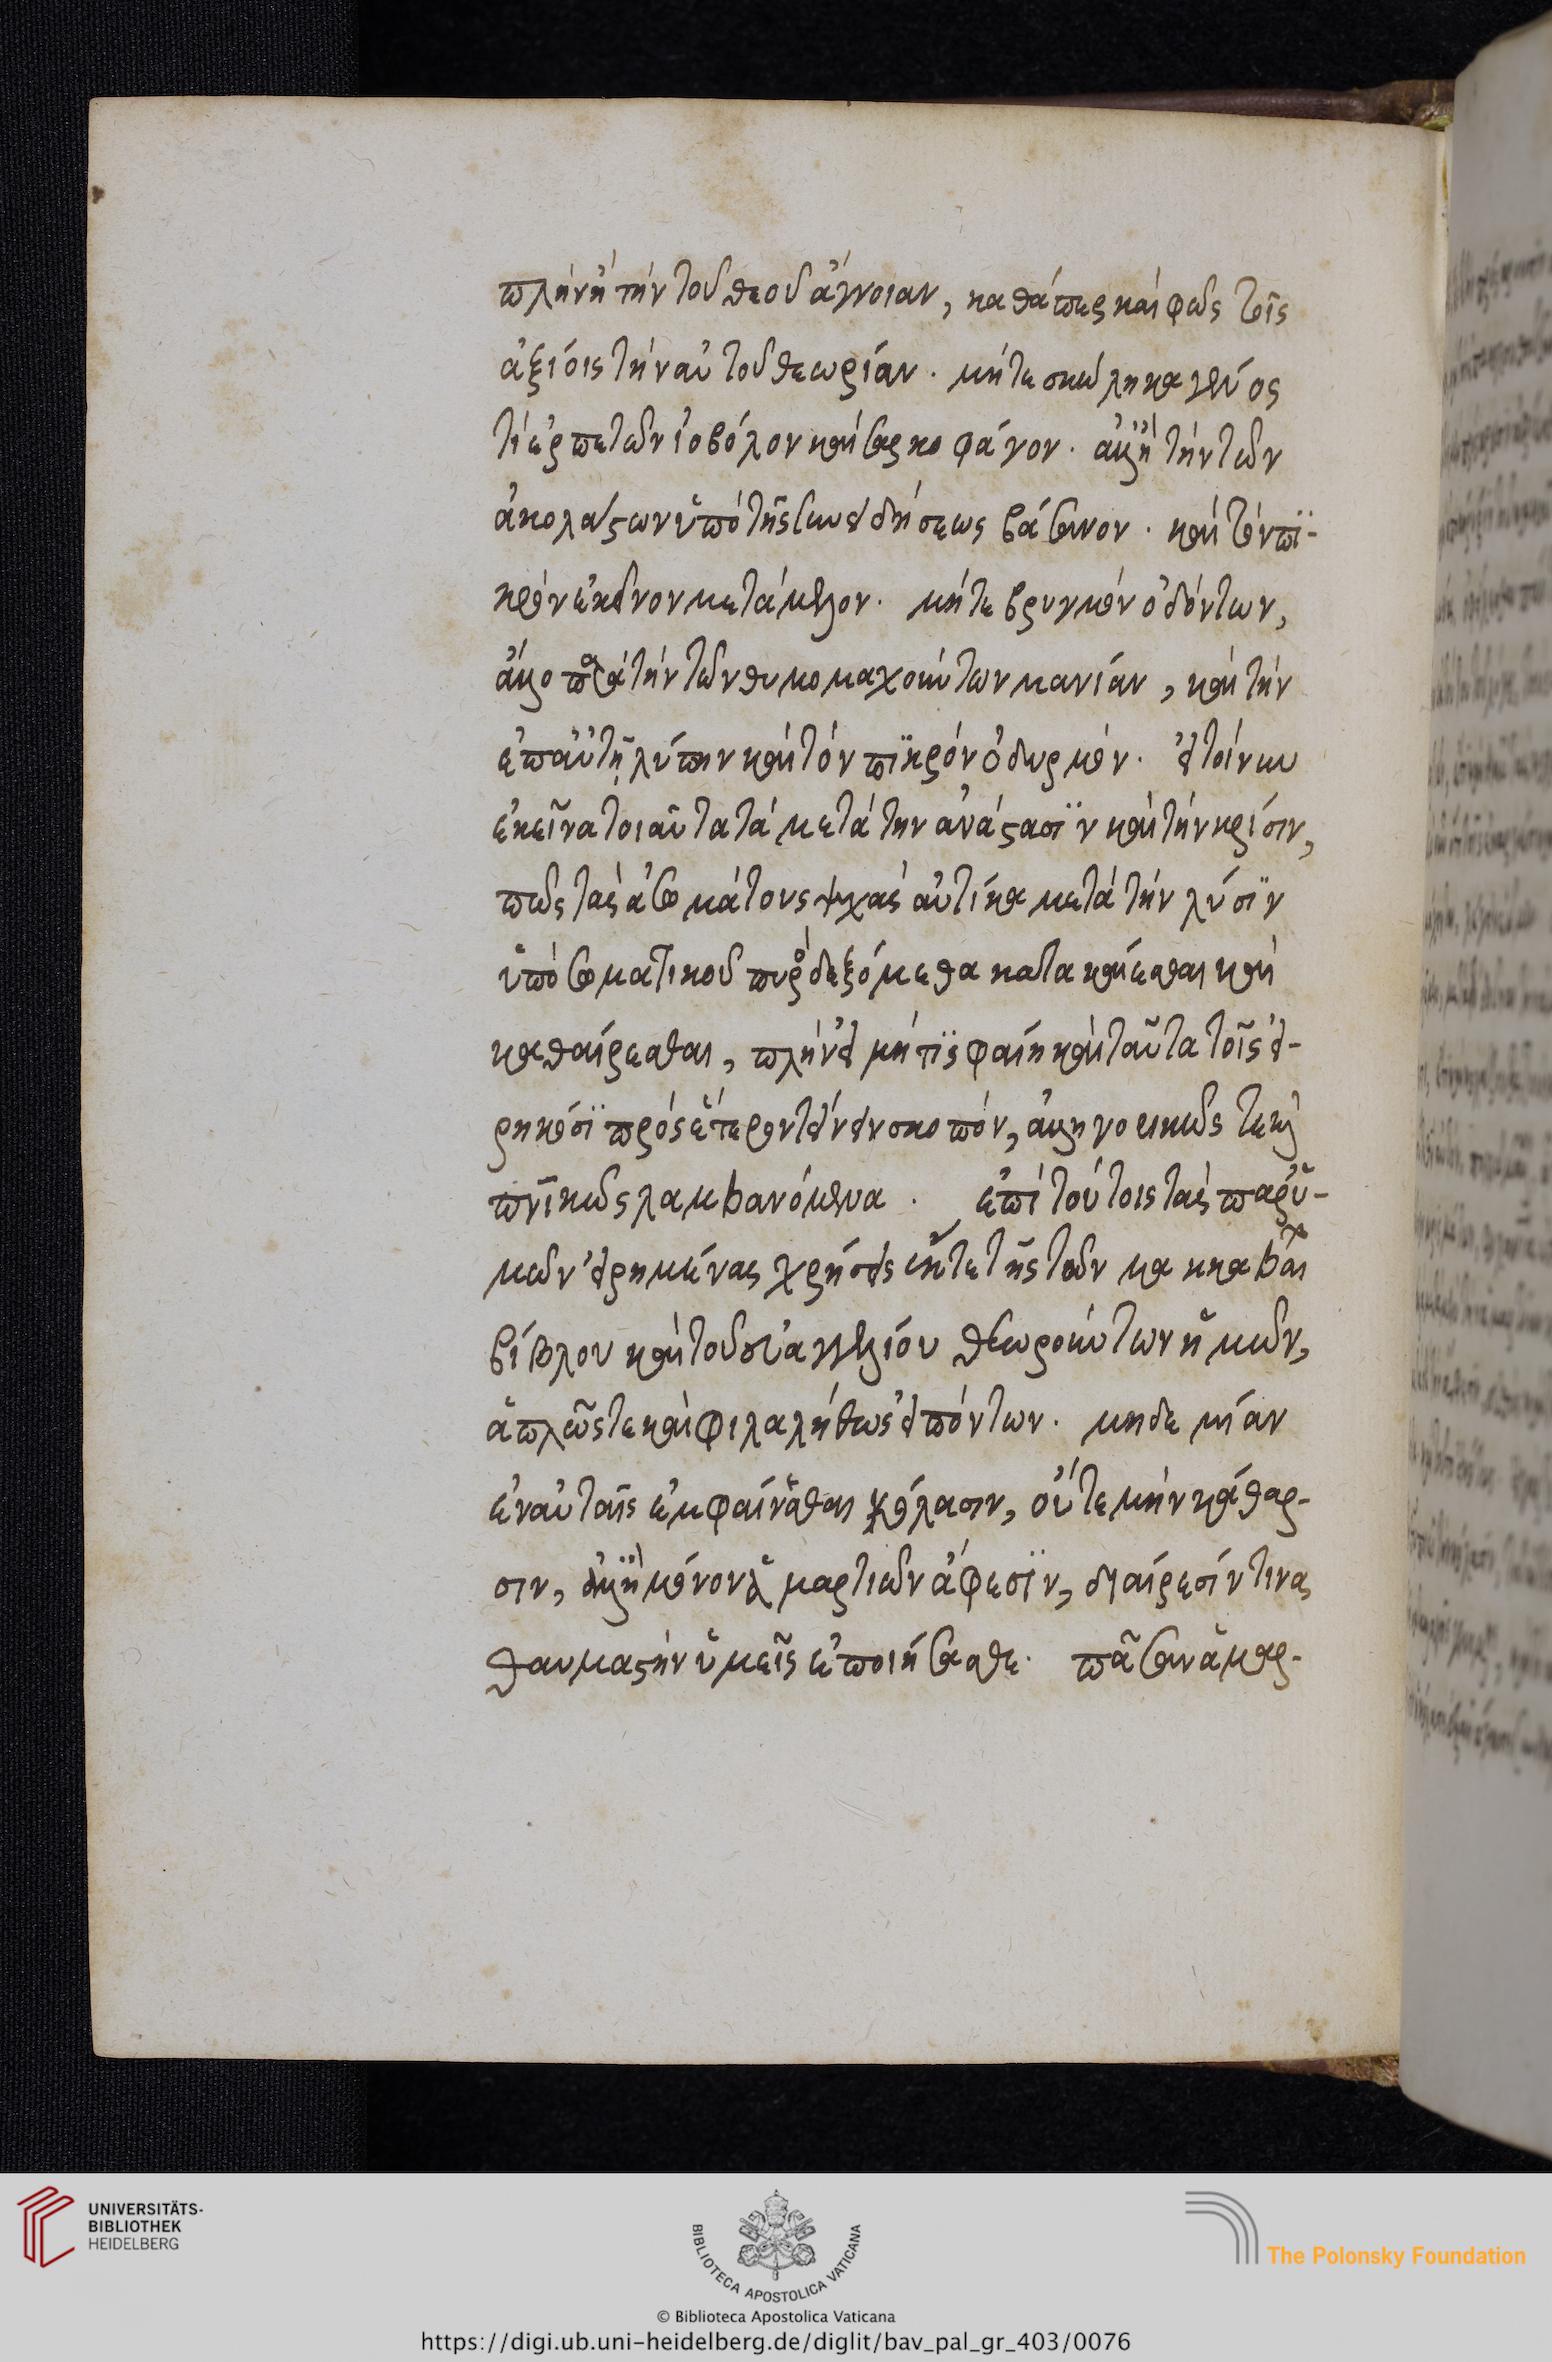 πλὴν ἢ τὴν τοῦ θεοῦ ἄγνοιαν, καθάπερ καὶ φῶς τοῖς
ἀξίοις τὴν αὐτοῦ θεωρίαν. μήτε σκώληκα γένος
τὶ ἑρπετῶν ἰοβόλον καὶ σαρκοφάγον. ἀλλ' ἢ τὴν τῶν
ἀκολάστων ὑπὸ τῆς συνειδήσεως βάσανον. καὶ τὸν πϊ-
κρὸν ἐκεῖνον μετάμελον. μήτε βρυγμὸν ὀδόντων,
ἄλλο παρὰ τὴν τῶν θυμομαχούντων μανίαν, καὶ τὴν
ἐπ' αὐτῇ λύπην καὶ τὸν πϊκρὸν ὀδυρμόν. εἰ τοίνυν
ἐκεῖνα τοιαῦτα τὰ μετὰ την ἀνάστασϊν καὶ τὴν κρίσιν,
πῶς τὰς ἀσωμάτους ψυχὰς αὐτίκα μετὰ τὴν λύσϊν
ὑπὸ σωματικοῦ πυρὸς δεξόμεθα κατακαίεσθαι καὶ
καθαίρεσθαι, πλὴν εἰ μή τϊς φαίη καὶ ταῦτα τοῖς εἰ-
ρηκόσϊ πρὸς ἕτερον τείνειν σκοπόν, ἀλληγορικῶς τε καὶ
πνϊκῶς λαμβανόμενα. ἐπὶ τούτοις τὰς παρ' ὑ-
μῶν εἰρημένας χρήσεις ἔκ τε τῆς τῶν μακκαβαίων
βίβλου καὶ τοῦ εὐαγγελίου θεωρούντων ἡμῶν,
ἁπλῶς τε καὶ φιλαλήθως εἰπόντων. μηδεμίαν
ἐν αὐταῖς ἐμφαίνεσθαι κόλασιν, οὔτε μὴν κάθαρ-
σιν, ἀλλ' ἢ μόνον ἁμαρτιῶν ἄφεσϊν, διαίρεσίν τινα
θαυμαστὴν ὑμεῖς ἐποιήσασθε. πᾶσαν ἁμαρ-
UNIVERSITÄTS-
BIBLIOTHEK
HEIDELBERG
BIBLIOTECA APOSTOLICA VATICANA
The Polonsky Foundation
© Biblioteca Apostolica Vaticana
https://digi.ub.uni-heidelberg.de/diglit/bav_pal_gr_403/0076